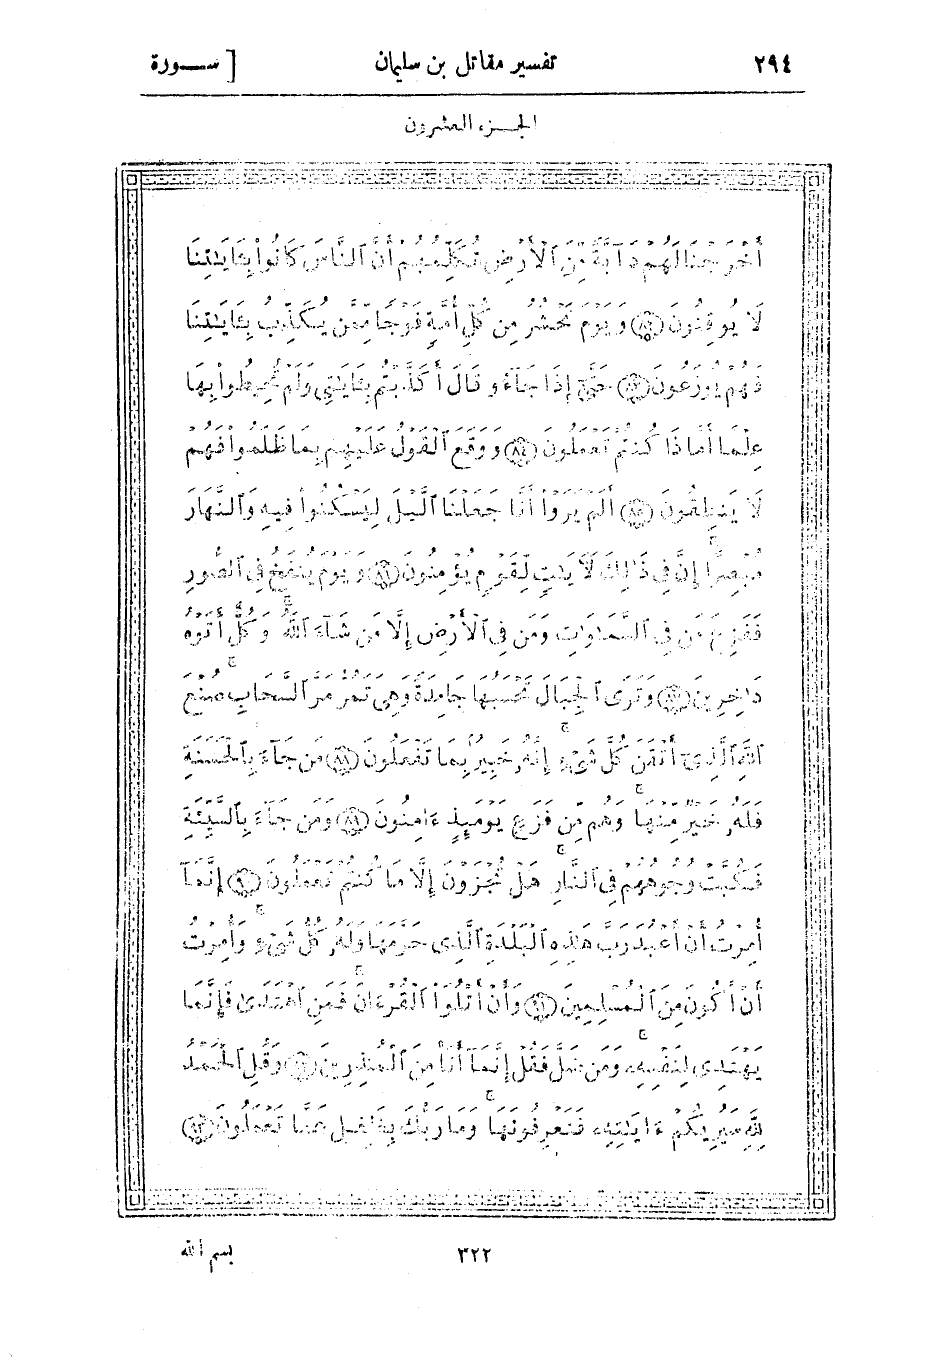 ٢٩٤ تفسير مقاتل بن سليمان [ سـورة
الجزء العشرون
أَخْرَجْنَا لَهُمْ دَآبَّةً مِّنَ ٱلْأَرْضِ تُكَلِّمُهُمْ أَنَّ ٱلنَّاسَ كَانُواْ بِـَٔايَـٰتِنَا
لَا يُوقِنُونَ ﴿٨٢﴾ وَيَوْمَ نَحْشُرُ مِن كُلِّ أُمَّةٍ فَوْجًا مِّمَّن يُكَذِّبُ بِـَٔايَـٰتِنَا
فَهُمْ يُوزَعُونَ ﴿٨٣﴾ حَتَّىٰٓ إِذَا جَآءُو قَالَ أَكَذَّبْتُم بِـَٔايَـٰتِى وَلَمْ تُحِيطُواْ بِهَا
عِلْمًا أَمَّاذَا كُنتُمْ تَعْمَلُونَ ﴿٨٤﴾ وَوَقَعَ ٱلْقَوْلُ عَلَيْهِم بِمَا ظَلَمُواْ فَهُمْ
لَا يَنطِقُونَ ﴿٨٥﴾ أَلَمْ يَرَوْاْ أَنَّا جَعَلْنَا ٱلَّيْلَ لِيَسْكُنُواْ فِيهِ وَٱلنَّهَارَ
مُبْصِرًا ۚ إِنَّ فِى ذَٰلِكَ لَـَٔايَـٰتٍ لِّقَوْمٍ يُؤْمِنُونَ ﴿٨٦﴾ وَيَوْمَ يُنفَخُ فِى ٱلصُّورِ
فَفَزِعَ مَن فِى ٱلسَّمَـٰوَٰتِ وَمَن فِى ٱلْأَرْضِ إِلَّا مَن شَآءَ ٱللَّهُ ۚ وَكُلٌّ أَتَوْهُ
دَٰخِرِينَ ﴿٨٧﴾ وَتَرَى ٱلْجِبَالَ تَحْسَبُهَا جَامِدَةً وَهِىَ تَمُرُّ مَرَّ ٱلسَّحَابِ ۚ صُنْعَ
ٱللَّهِ ٱلَّذِىٓ أَتْقَنَ كُلَّ شَىْءٍ ۚ إِنَّهُۥ خَبِيرٌۢ بِمَا تَفْعَلُونَ ﴿٨٨﴾ مَن جَآءَ بِٱلْحَسَنَةِ
فَلَهُۥ خَيْرٌ مِّنْهَا ۚ وَهُم مِّن فَزَعٍ يَوْمَئِذٍ ءَامِنُونَ ﴿٨٩﴾ وَمَن جَآءَ بِٱلسَّيِّئَةِ
فَكُبَّتْ وُجُوهُهُمْ فِى ٱلنَّارِ ۚ هَلْ تُجْزَوْنَ إِلَّا مَا كُنتُمْ تَعْمَلُونَ ﴿٩٠﴾ إِنَّمَآ
أُمِرْتُ أَنْ أَعْبُدَ رَبَّ هَـٰذِهِ ٱلْبَلْدَةِ ٱلَّذِى حَرَّمَهَا وَلَهُۥ كُلُّ شَىْءٍ ۚ وَأُمِرْتُ
أَنْ أَكُونَ مِنَ ٱلْمُسْلِمِينَ ﴿٩١﴾ وَأَنْ أَتْلُوَاْ ٱلْقُرْءَانَ ۚ فَمَنِ ٱهْتَدَىٰ فَإِنَّمَا
يَهْتَدِى لِنَفْسِهِۦ ۚ وَمَن ضَلَّ فَقُلْ إِنَّمَآ أَنَا۠ مِنَ ٱلْمُنذِرِينَ ﴿٩٢﴾ وَقُلِ ٱلْحَمْدُ
لِلَّهِ سَيُرِيكُمْ ءَايَـٰتِهِۦ فَتَعْرِفُونَهَا ۚ وَمَا رَبُّكَ بِغَـٰفِلٍ عَمَّا تَعْمَلُونَ ﴿٩٣﴾
٣٢٢ بسم الله